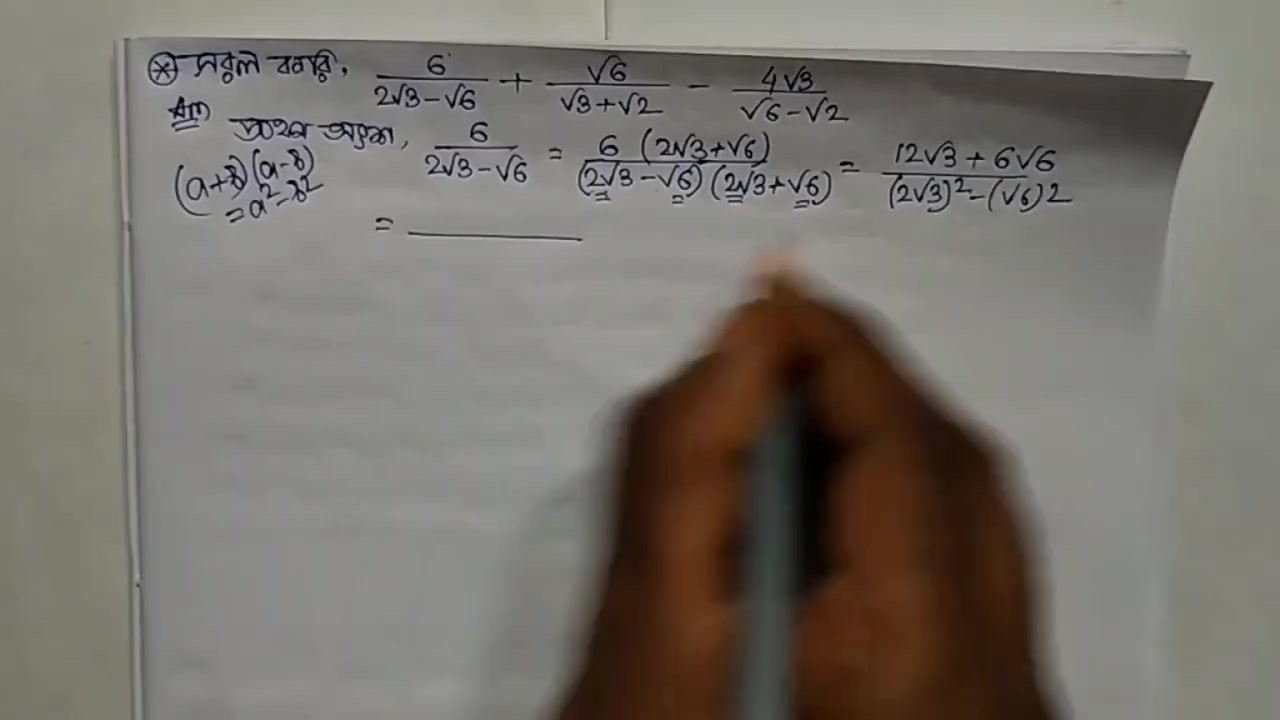 ⊛ সরল করি, 6/(2√3-√6) + √6/(√3+√2) - 4√3/(√6-√2)
Ans প্রথম অংশ, 6/(2√3-√6) = 6(2√3+√6)/((2√3-√6)(2√3+√6)) = (12√3+6√6)/((2√3)²-(√6)2)
(a+b)(a-b)
=a²-b²
=